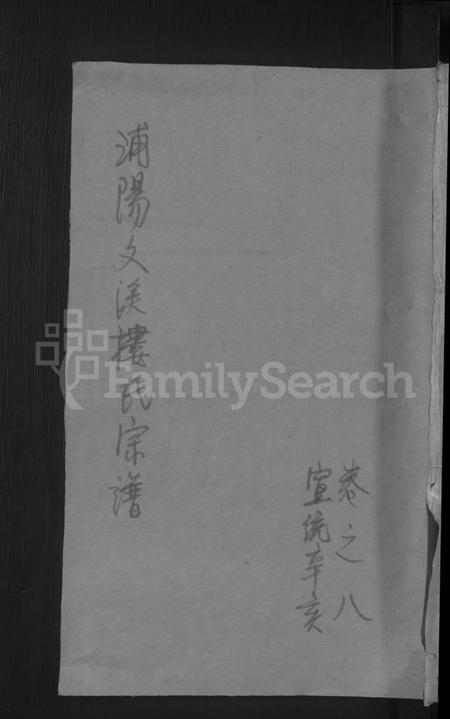 卷之八
宣统辛亥
浦陽文溪樓氏宗譜
FamilySearch